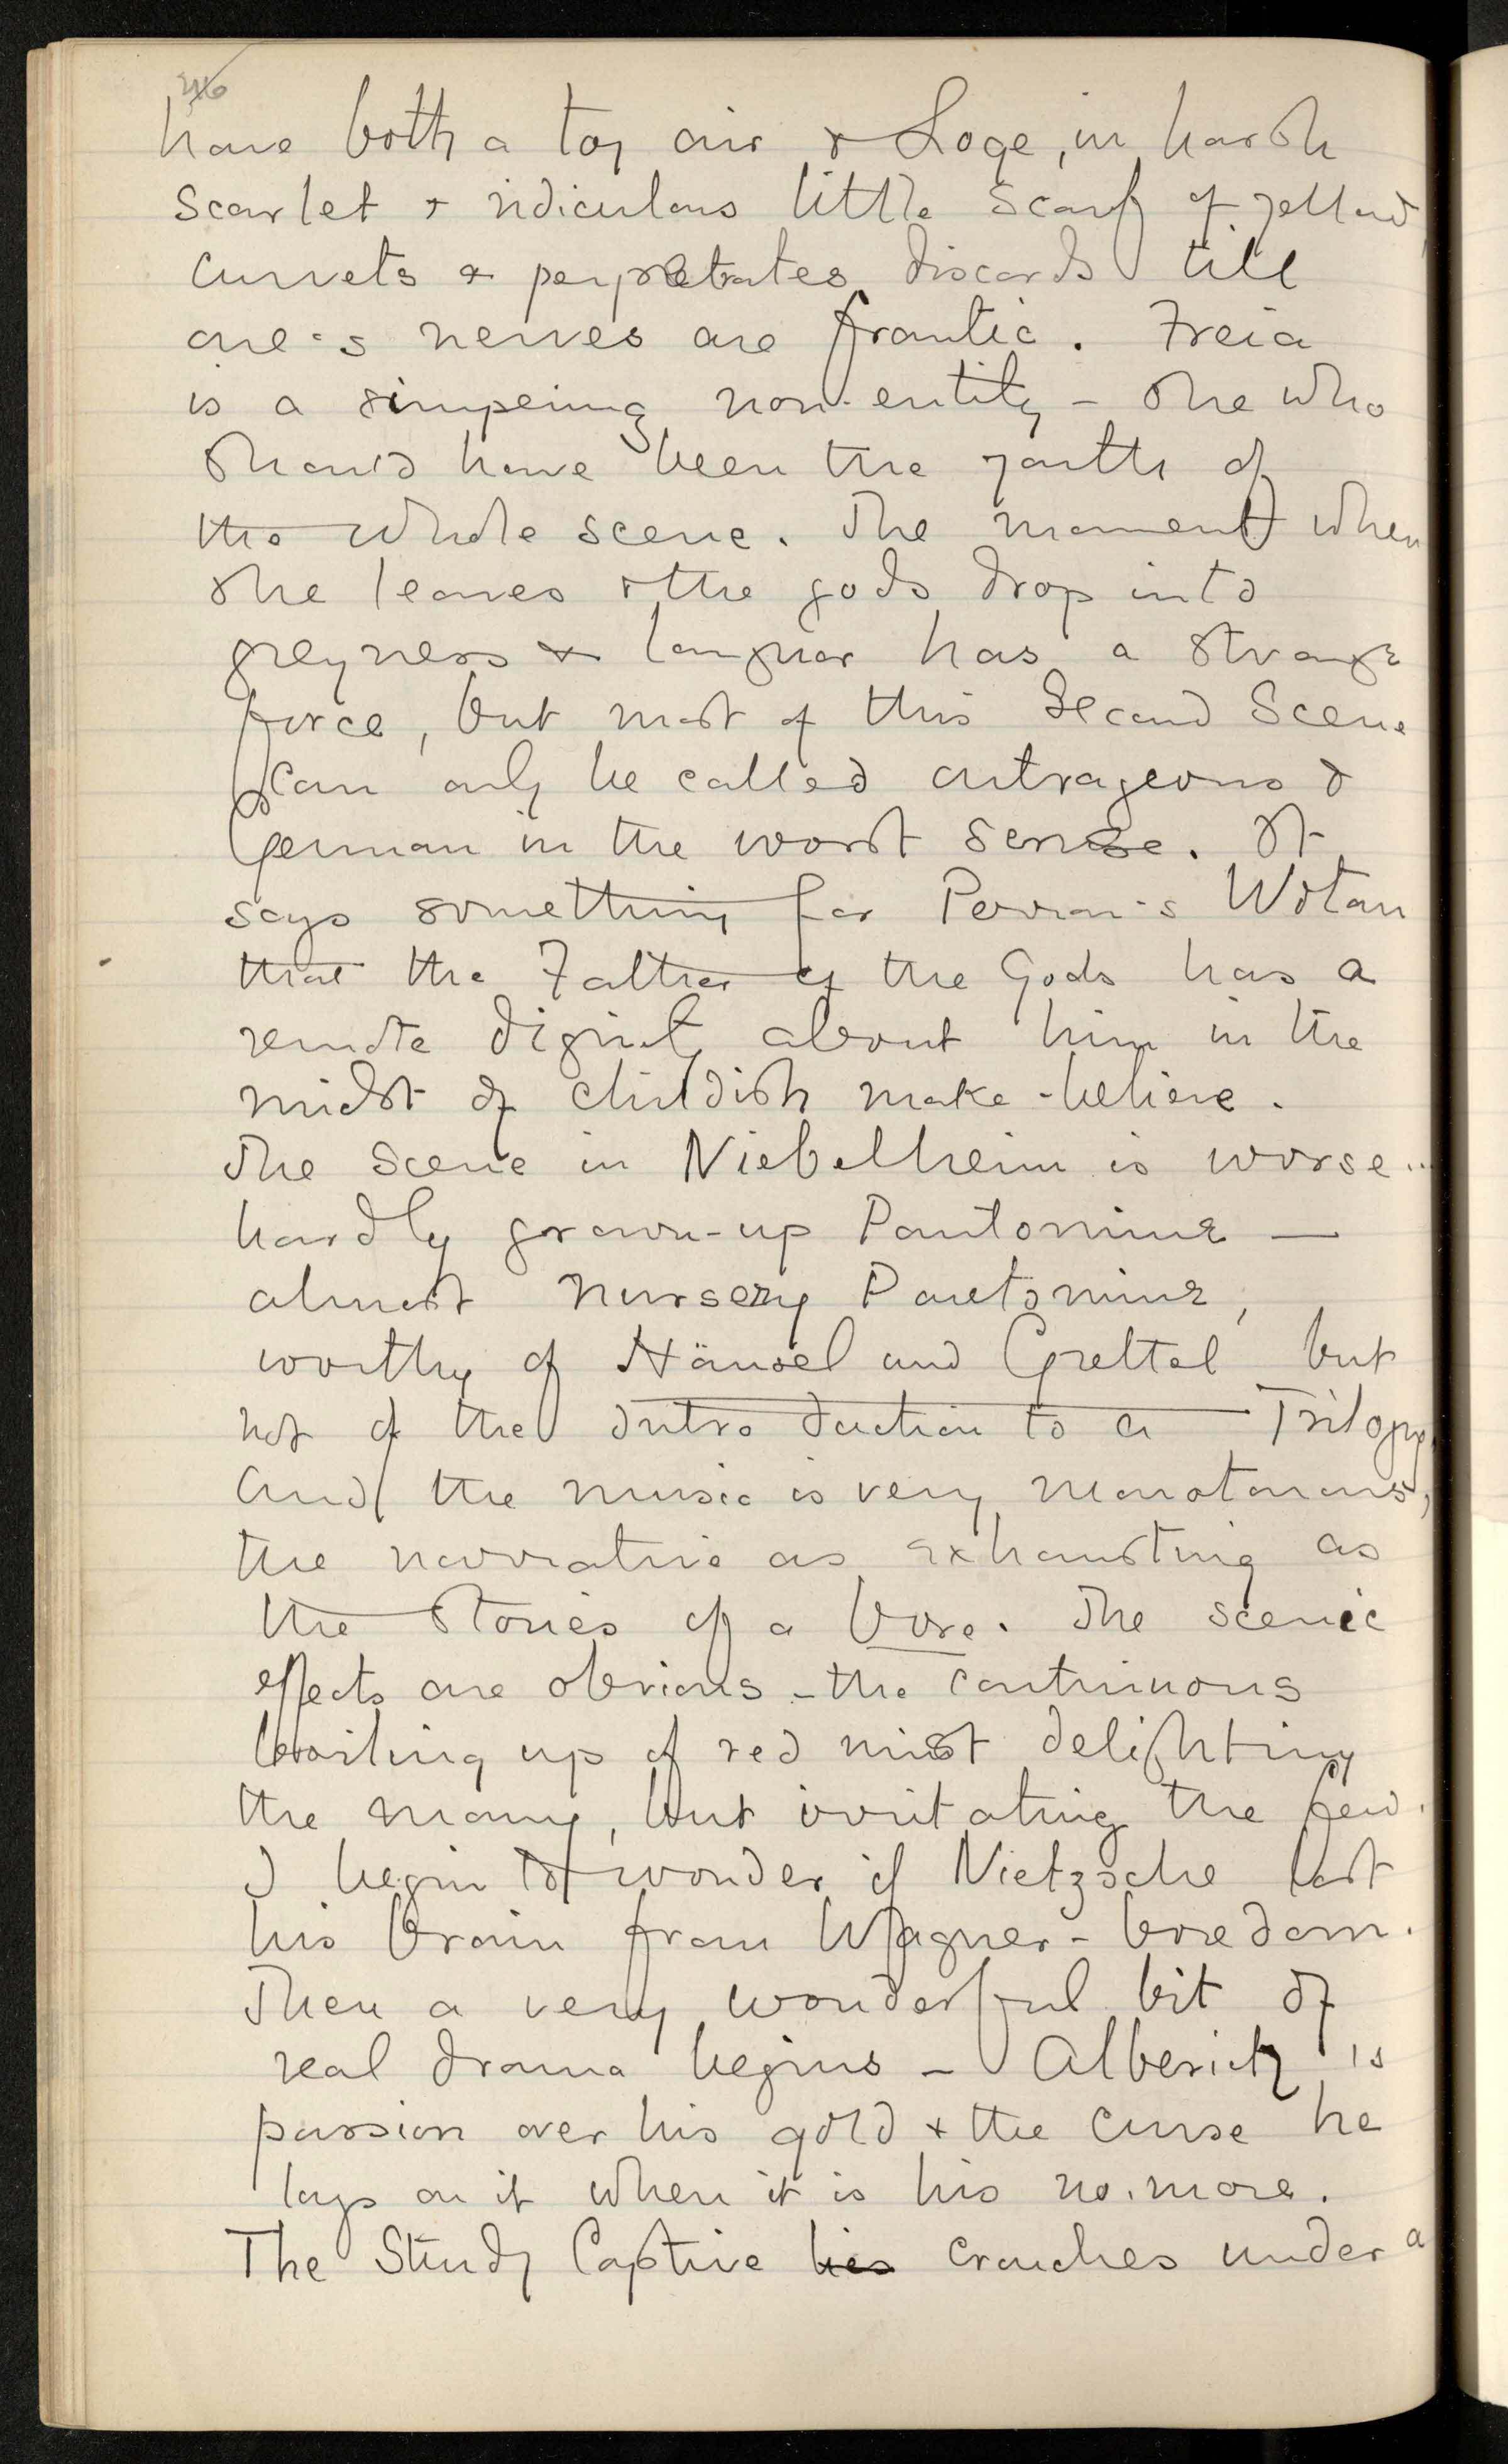 have both a toy air & Loge, in harsh
scarlet & ridiculous little scarf of yellow,
curvets & perpetrates discords till
one's nerves are frantic. Freia
is a simpering non-entity – she who
should have been the youth of
the whole scene. The moment when
she leaves & the gods drop into
greyness & languor has a strange
force, but most of this Second Scene
can only be called outrageous &
German in the worst sense. It
says something for Perron's Wotan
that the Father of the Gods has a
remote dignity about him in the
midst of childish make-believe.
The Scene in Niebelheim is worse...
hardly grown-up Pantomime —
almost nursery Pantomime,
worthy of Hänsel und Grettel but
not of the Introduction to a Trilogy,
And the music is very monotonous,
the narrative as exhausting as
the stories of a bore. The scenic
effects are obvious – the continuous
boiling up of red mist delighting
the many, but irritating the few.
I begin to wonder if Nietzsche lost
his brain from Wagner-boredom.
Then a very wonderful bit of
real drama begins – Alberich's
passion over his gold & the curse he
lays on it when it is his no more.
The Sturdy Captive lies crouches under a